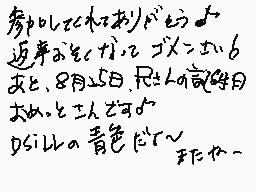 参加してくれてありがとう♪
返事おそくなって ゴメンさい6
あと、8月25日、Rさんの記念日
おめっとさんですよ♪
DSiLLの 青色だよ～
またね～